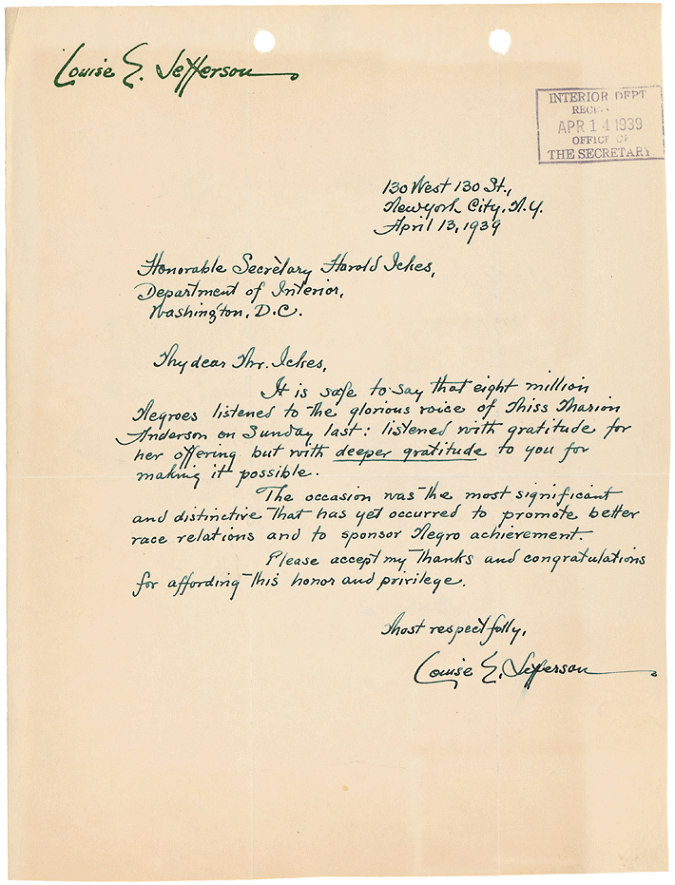 Louise E. Jefferson
INTERIOR DEPT
APR 14 1939
OFFICE OF
THE SECRETARY
130 West 130 St.,
New York City, N.Y.
April 13, 1939
Honorable Secretary Harold Ickes,
Department of Interior,
Washington, D.C.
My dear Mr. Ickes,
It is safe to say that eight million
Negroes listened to the glorious voice of Miss Marion
Anderson on Sunday last: listened with gratitude for
her offering but with deeper gratitude to you for
making it possible.
The occasion was the most significant
and distinctive that has yet occurred to promote better
race relations and to sponsor Negro achievement.
Please accept my thanks and congratulations
for affording this honor and privilege.
Most respectfully,
Louise E. Jefferson